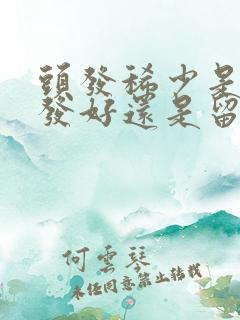 頭發稀少是
發好還是留
何雲琴
未經同意禁止轉載